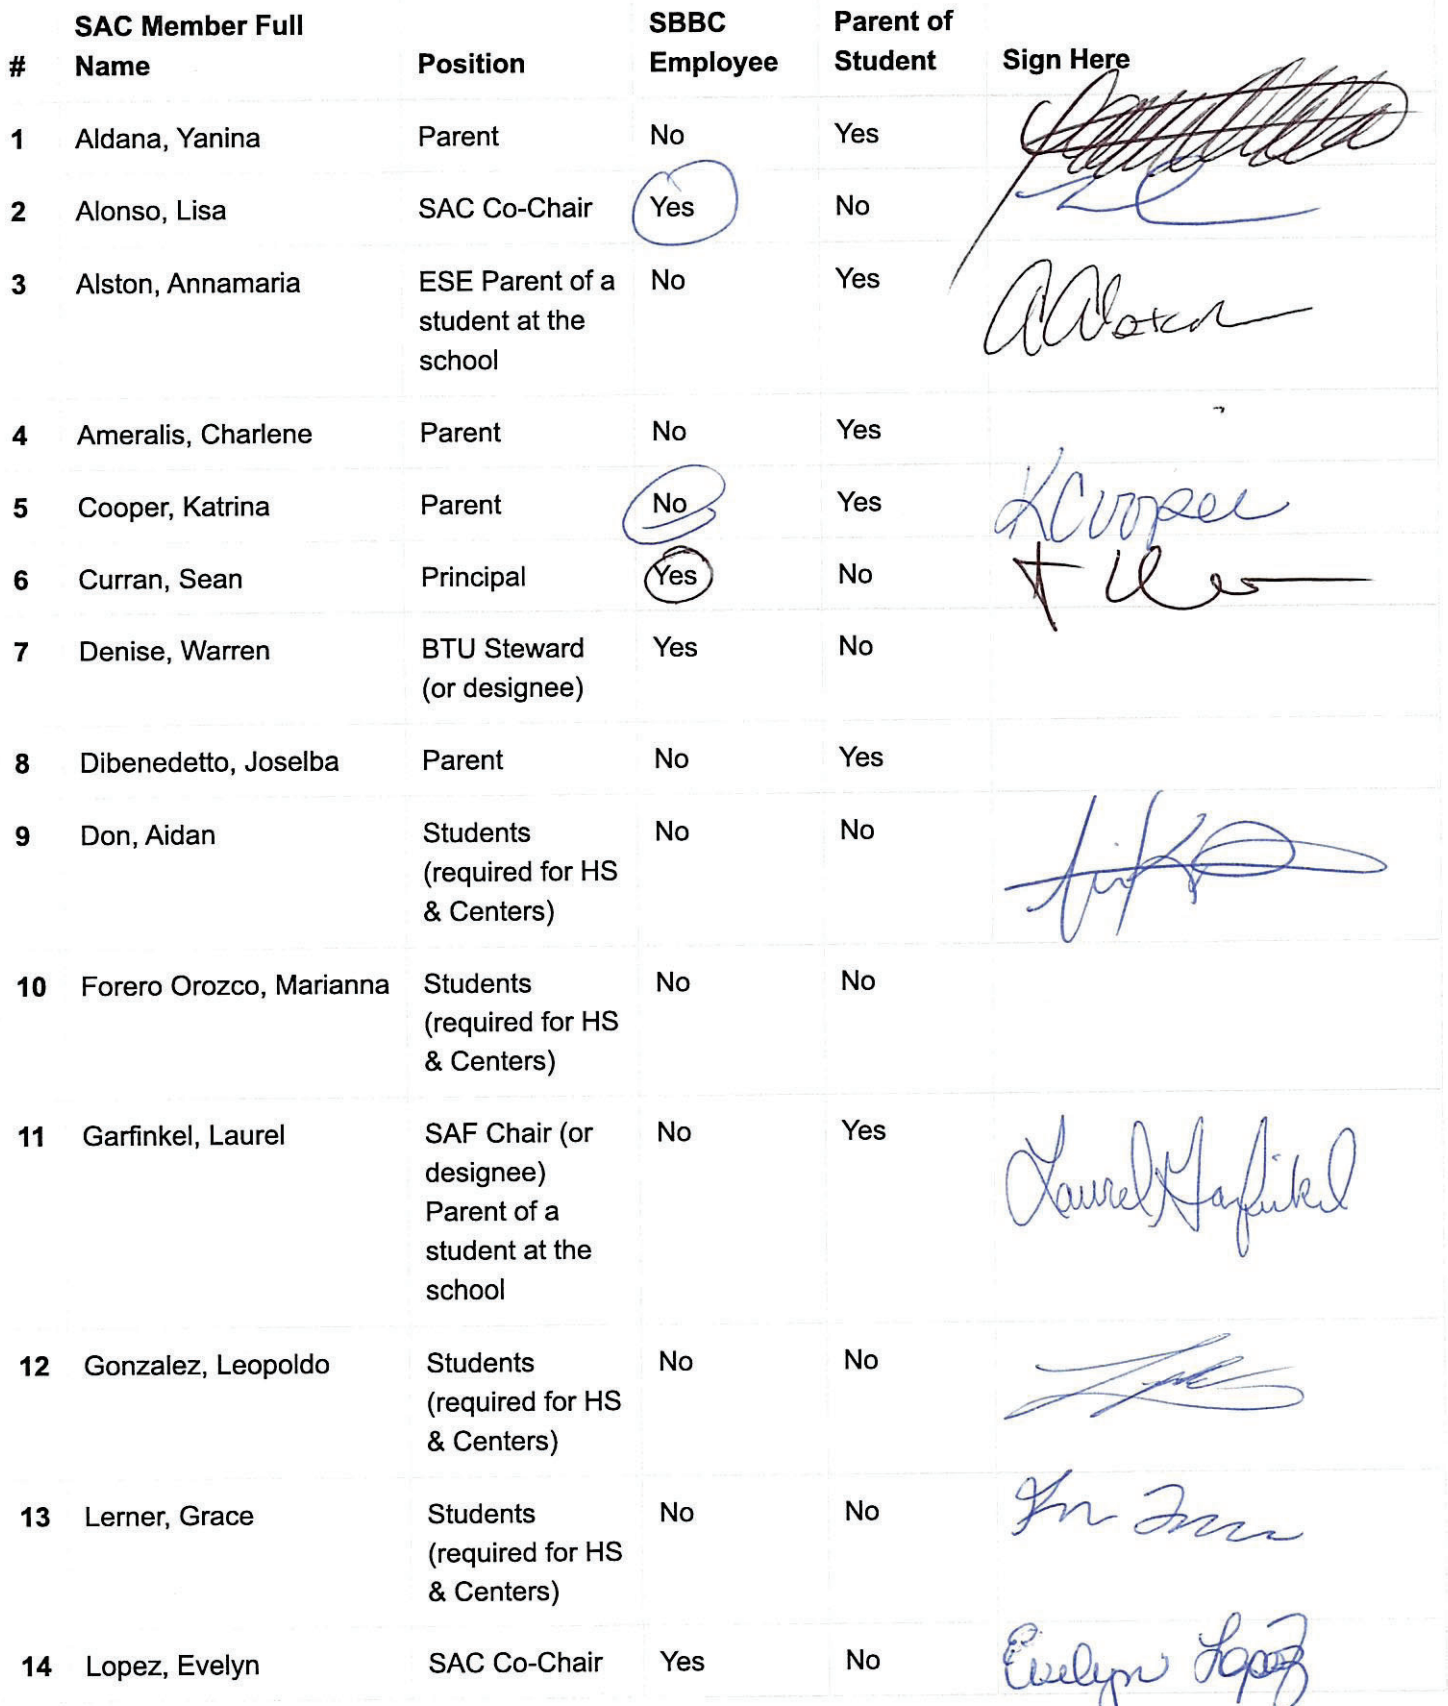 # SAC Member Full Name Position SBBC Employee Parent of Student Sign Here
1 Aldana, Yanina Parent No Yes
2 Alonso, Lisa SAC Co-Chair Yes No
3 Alston, Annamaria ESE Parent of a No Yes AAlston
student at the
school
4 Ameralis, Charlene Parent No Yes
5 Cooper, Katrina Parent No Yes KCooper
6 Curran, Sean Principal Yes No
7 Denise, Warren BTU Steward Yes No
(or designee)
8 Dibenedetto, Joselba Parent No Yes
9 Don, Aidan Students No No
(required for HS
& Centers)
10 Forero Orozco, Marianna Students No No
(required for HS
& Centers)
11 Garfinkel, Laurel SAF Chair (or No Yes Laurel Garfinkel
designee)
Parent of a
student at the
school
12 Gonzalez, Leopoldo Students No No
(required for HS
& Centers)
13 Lerner, Grace Students No No
(required for HS
& Centers)
14 Lopez, Evelyn SAC Co-Chair Yes No Evelyn Lopez